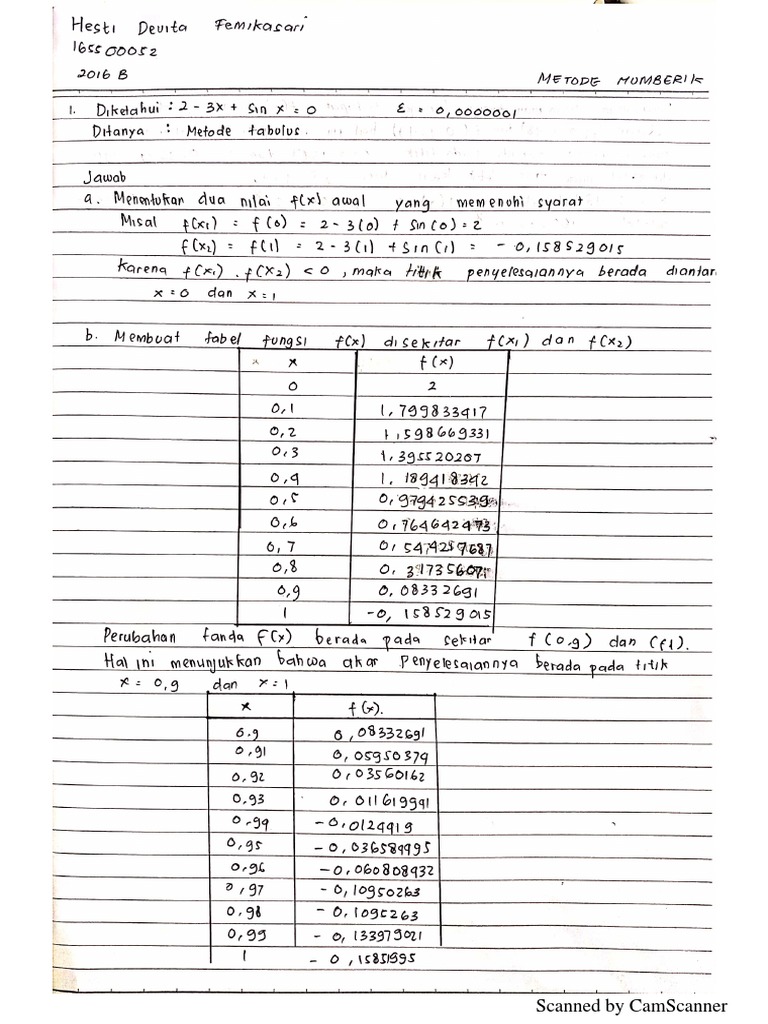 Hesti Devita Femikasari
165500052
2016 B
METODE NUMBERIK
1. Diketahui : 2 - 3x + sin x = 0 ε = 0,0000001
Ditanya : Metode tabulus.
Jawab
a. Menentukan dua nilai f(x) awal yang memenuhi syarat
Misal f(x₁) = f(0) = 2 - 3(0) + sin(0) = 2
f(x₂) = f(1) = 2 - 3(1) + sin(1) = - 0,158529015
Karena f(x₁) . f(x₂) < 0 , maka titik penyelesaiannya berada diantar
x = 0 dan x = 1
b. Membuat tabel fungsi f(x) disekitar f(x₁) dan f(x₂)
x f(x)
0 2
0,1 1,799833417
0,2 1,598669331
0,3 1,395520207
0,4 1,189418342
0,5 0,979425539
0,6 0,764642473
0,7 0,544217687
0,8 0,31735607
0,9 0,08332691
1 -0,158529015
Perubahan tanda F(x) berada pada sekitar f(0,9) dan (f1).
Hal ini menunjukkan bahwa akar penyelesaiannya berada pada titik
x = 0,9 dan x = 1
x f(x).
0,9 0,08332691
0,91 0,05950374
0,92 0,03560162
0,93 0,011619941
0,94 -0,0124419
0,95 -0,036584495
0,96 -0,060808432
0,97 -0,10950263
0,98 -0,1095263
0,99 -0,133979021
1 -0,15851995
Scanned by CamScanner